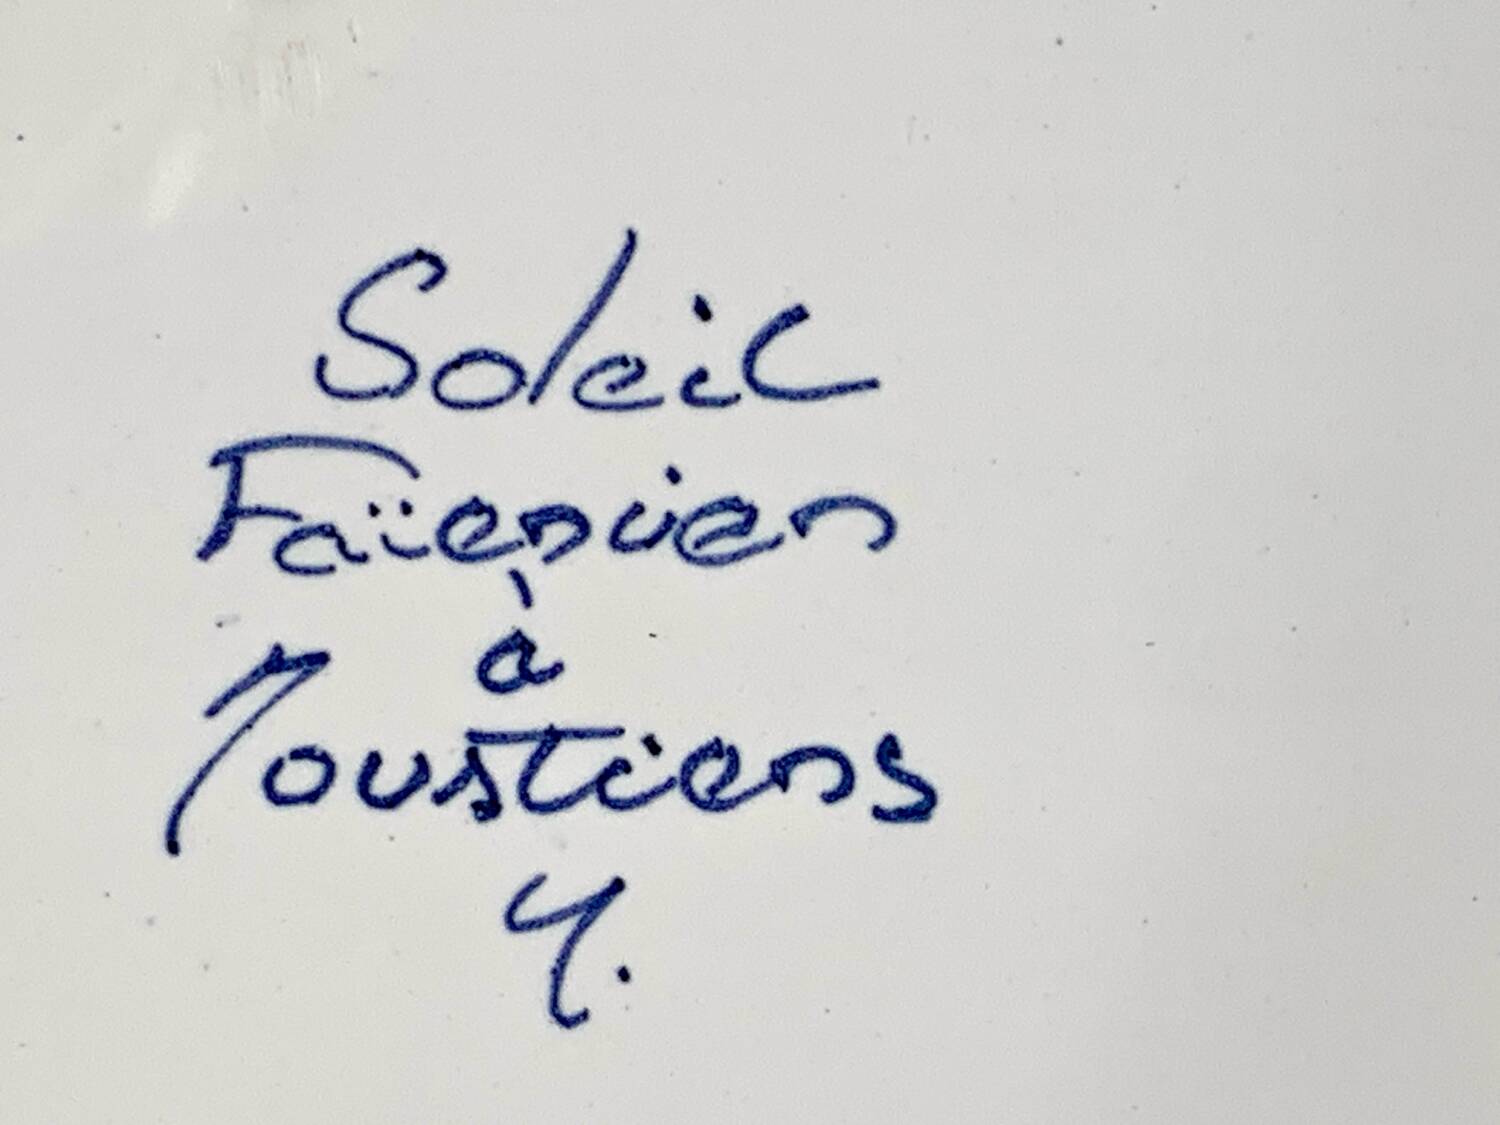 Soleil
Faïencier
à
Moustiers
Y.